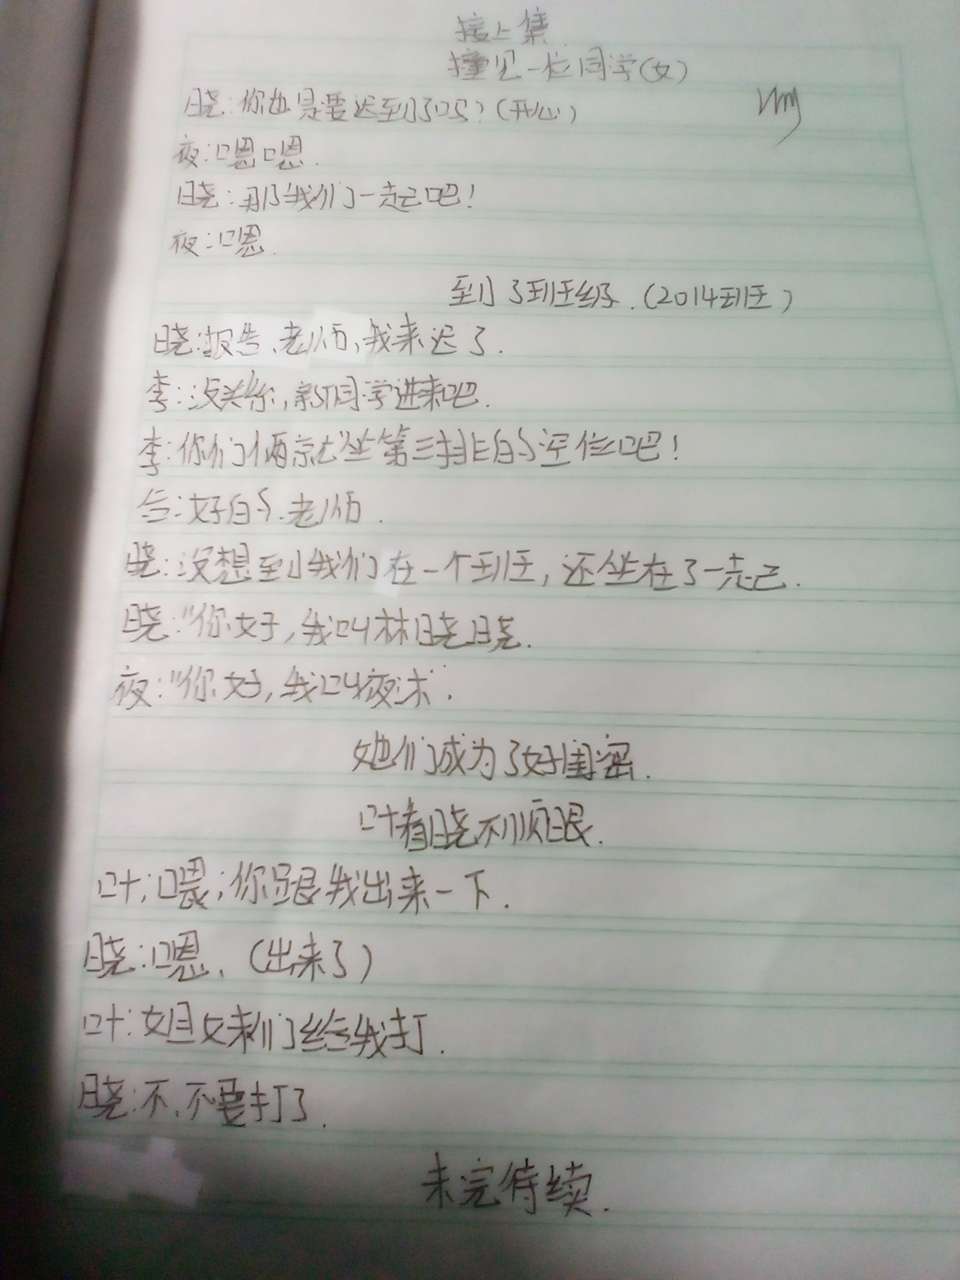 接上集
撞见一位同学(女)
晓:你也是要迟到了吗?(开心)
夜:嗯嗯.
晓:那我们一起吧!
夜:嗯.
到了班级.(2014班)
晓:报告、老师,我来迟了.
李:没关系,新同学进来吧.
李:你们俩就坐第三排的空位吧!
合:好的.老师.
晓:没想到我们在一个班,还坐在了一起.
晓:"你好,我叫林晓晓.
夜:"你好,我叫夜沐".
她们成为了好闺密.
叶看晓不顺眼.
叶;喂;你跟我出来一下.
晓:嗯、(出来了)
叶:姐妹们给我打.
晓:不,不要打了.
未完待续.